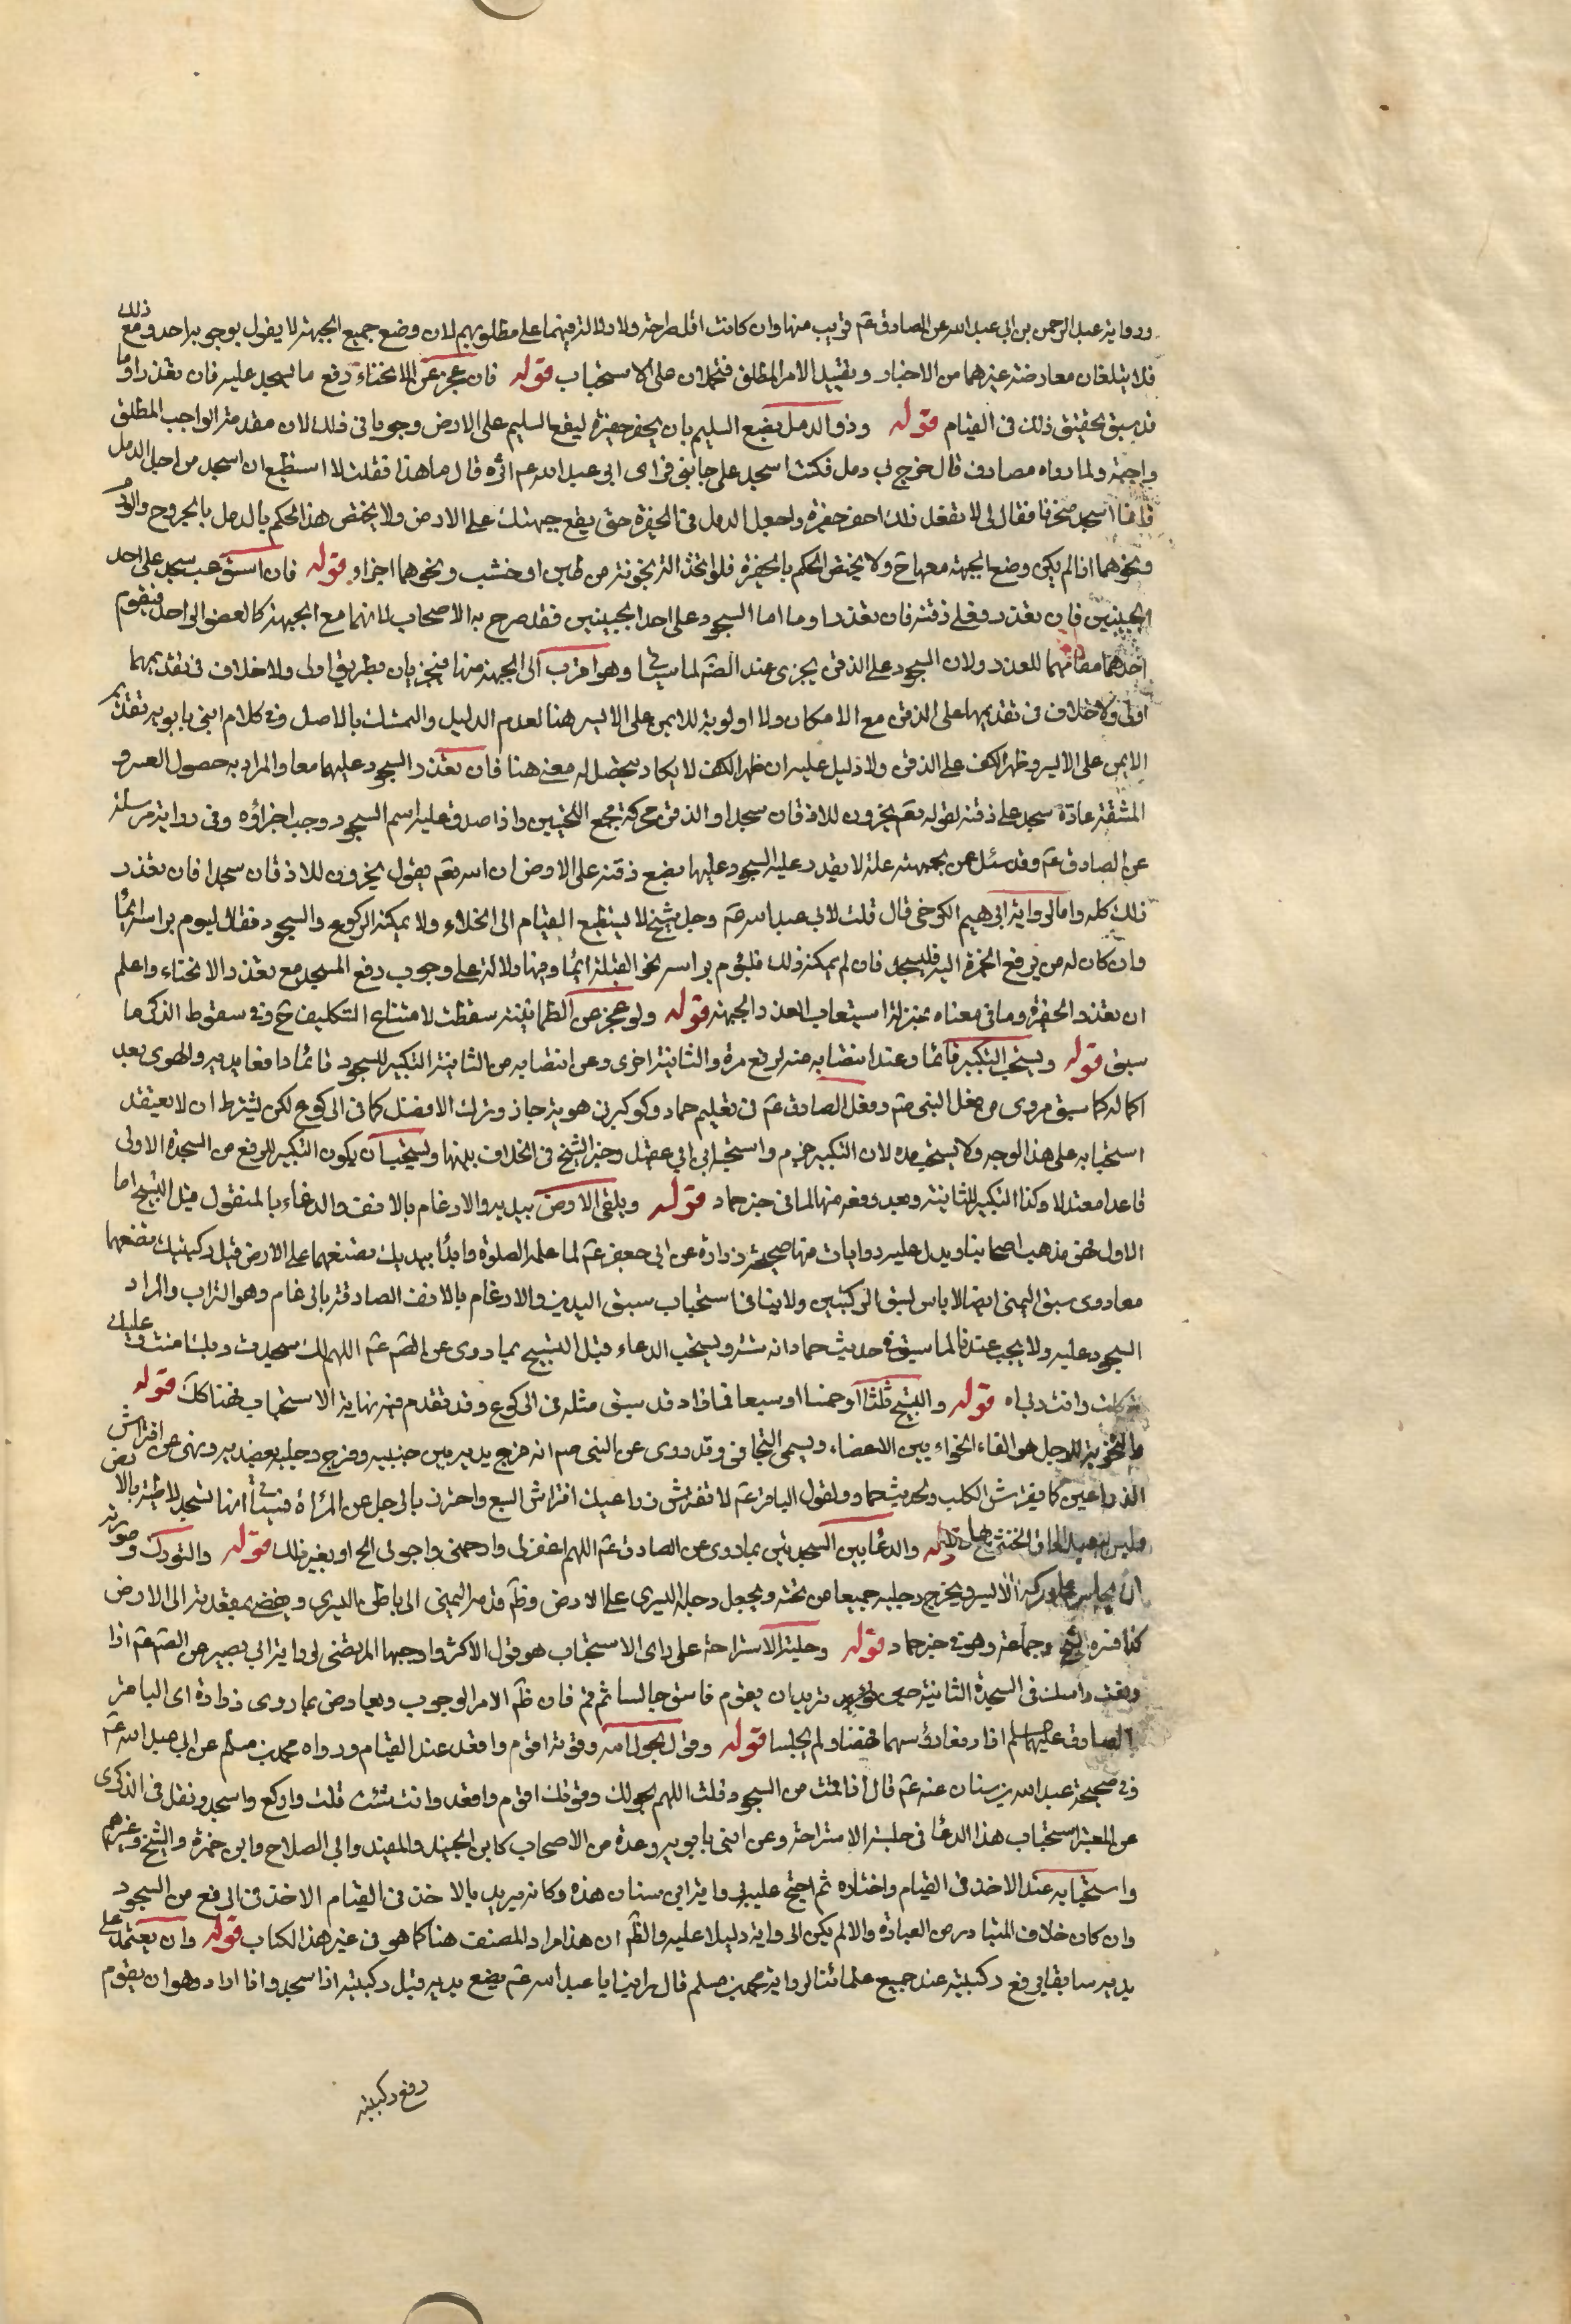 ورواية عبد الرحمن بن ابي عبد الله عن الصادق عم قريب منها وان كانت اقل صراحة ولا دلالة فيهما على مطلوبهم لان وضع جميع الجبهة لا يقول بوجوبه احد ومع ذلك
فلا يبلغان معارضة غيرهما من الاخبار وتقييد الامر المطلق فتحملان على الاستحباب قوله فان عجز عن الانحناء رفع ما يسجد عليه فان تعذر اوما
قد سبق تحقيق ذلك في القيام قوله وذو الدمل يضع السليم بان يحفر حفيرة ليقع السليم على الارض وجوبا في ذلك لان مقدمة الواجب المطلق
واجبة ولما رواه مصادف قال خرج بي دمل فكنت اسجد على جانب فراى ابي عبد الله عم اثره قال ما هذا فقلت لا استطيع ان اسجد من اجل الدمل
فانما اسجد منحرفا فقال لي لا تفعل ذلك احفر حفيرة واجعل الدمل في الحفرة حتى يقع جبهتك على الارض ولا يختص هذا الحكم بالدمل بالجروح والورم
ونحوهما اذا لم يكن وضع الجبهة معها ولا يختص الحكم بالحفرة فلو اتخذ آلة مجوفة من طين او خشب ونحوهما اجزاه قوله فان استوعب سجد على احد
الجبينين فان تعذر فعلى ذقنه فان تعذر اوما اما السجود على احد الجبينين فقد صرح به الاصحاب لانهما مع الجبهة كالعضو الواحد فيقوم
احدهما مقامها للعذر ولان السجود على الذقن يجزي عند الضم لما سياتي وهو اقرب الى الجبهة منها فيجزيان بطريق اولى ولا خلاف في تقديمهما
اولى ولا خلاف في تقديمها على الذقن مع الامكان ولا اولوية للايمن على الايسر هنا لعدم الدليل والتمسك بالاصل وفي كلام ابني بابويه تقديم
الايمن على الايسر وظهر الكف على الذقن ولا دليل عليه ان ظهر الكف لا يكاد يتحصل له معنى هنا فان تعذر السجود عليهما معا والمراد به حصول العسر و
المشقة عادة سجد على ذقنه لقوله تعم يخرون للاذقان سجدا والذقن محركة مجمع اللحيين واذا صدق عليه اسم السجود وجب اجزاؤه وفي رواية مرسلة
عن الصادق عم وقد سئل عمن بجبهته علة لا يقدر عليه السجود عليها يضع ذقنه على الارض ان الله تعم يقول يخرون للاذقان سجدا فان تعذر
ذلك كله واما لرواية ابرهيم الكرخي قال قلت لابي عبد الله عم رجل شيخ لا يستطيع القيام الى الخلاء ولا يمكنه الركوع والسجود فقال ليوم براسه ايماء
وان كان له من يرفع الخمرة اليه فليسجد فان لم يمكنه ذلك فليوم براسه نحو القبلة ايماء وفيها دلالة على وجوب رفع المسجد مع تعذر الانحناء واعلم
ان تعذر الحفيرة وما في معناه بمنزلة استيعاب العذر الجبهة قوله ولو عجز عن الطمانينة سقطت لامتناع التكليف ح وفي سقوط الذكر ما
سبق قوله ويستحب التكبير قائما وعند انتصابه منه لرفع مرة والثانية اخرى وعن انتصابه من الثانية التكبير للسجود قائما رافعا يديه والهوى بعد
اكماله كما سبق مروي من فعل النبي صم وفعل الصادق عم في تعليم حماد وكو كبر في هويه جاز وترك الافضل كما في الركوع لكن يشترط ان لا يعتقد
استحبابه على هذا الوجه ولا يستحب مده لان التكبير جزم واستحب ابن ابي عقيل وخير الشيخ في الخلاف بينها ويستحب ان يكون التكبير للرفع من السجدة الاولى
قاعدا معتدلا وكذا التكبير للثانية وبعد رفعه منها لما في خبر حماد قوله ويلقى الارض بيديه والارغام بالانف والدعاء بالمنقول قبل التسبيح اما
الاول فهو مذهب اصحابنا ويدل عليه روايات منها صحيحة زرارة عن ابي جعفر عم لما علمه الصلوة وابدأ بيديك فضعهما على الارض قبل ركبتيك تضعهما
معا وروى سبق اليمنى ايضا لا باس لسبق الركبتين ولا ينافي استحباب سبق اليدين والارغام بالانف الصادقة بالرغام وهو التراب والمراد
السجود عليه ولا يجب عندنا لما سبق في حديث حماد انه سنة ويستحب الدعاء قبل التسبيح بما روى عن الصم عم اللهم لك سجدت وبك امنت وعليك
توكلت وانت ربي اه قوله والتسبيح ثلثا او خمسا او سبعا فما زاد قد سبق مثله في الركوع وقد تقدم فيه نهاية الاستحباب فهنا كك قوله
والتخوية للرجل هي القاء الخواء بين الاعضاء ويسمى التجافي وقد روى عن النبي صم انه فرج يديه بين جنبيه وفرج رجليه بعضديه ونهى عن افتراش
الذراعين كما يفترش الكلب ولحديث حماد ولقول الباقر عم لا تفترش ذراعيك افتراش السبع واحترز بالرجل عن المراة فسياتي انها تسجد لاطئة بالارض
قوله والدعا بين السجدتين بما روى عن الصادق عم اللهم اغفر لي وارحمني واجرني الخ او بغير ذلك قوله والتورك وصورته
ان يجلس على وركه الايسر ويخرج رجليه جميعا من تحته ويجعل رجله اليسرى على الارض وظم قدمه اليمنى الى باطن اليسرى ويفضي بمقعدته الى الارض
كذا فسره الشيخ وجماعة وهو في خبر حماد قوله وجلسة الاستراحة على راى الاستحباب هو قول الاكثر واوجبها المرتضى لرواية ابي بصير عن الصم عم اذا
رفعت راسك في السجدة الثانية حين تريد ان يقوم فاستو جالسا ثم قم فان ظم الامر الوجوب ويعارض بما روى زرارة راى الباقر
الصادق عليهما السلم اذا رفعا رؤسهما نهضا ولم يجلسا قوله وقول بحول الله وقوته اقوم واقعد عند القيام ورواه محمد بن مسلم عن ابي عبد الله عم
وفي صحيحة عبد الله بن سنان عنه عم قال اذا قمت من السجود قلت اللهم بحولك وقوتك اقوم واقعد وان شئت قلت واركع واسجد ونقل في الذكرى
عن المعتبر استحباب هذا الدعا في جلسة الاستراحة وعن ابني بابويه وعدة من الاصحاب كابن الجنيد والمفيد وابي الصلاح وابن حمزة والشيخ وغيرهم
واستحبابه عند الاخذ في القيام واختاره ثم احتج عليه برواية ابن سنان هذه وكانه يريد بالاخذ في القيام الاخذ في الرفع من السجود
وان كان خلاف المتبادر من العبادة والا لم يكن الرواية دليلا عليه والظم ان هذا مراد المصنف هنا كما هو في غير هذا الكتاب قوله وان يعتمد على
يديه سابقا برفع ركبتيه عند جميع علمائنا لرواية محمد بن مسلم قال راينا ابا عبد الله عم يضع يديه قبل ركبتيه اذا سجد واذا اراد وهو ان يقوم
رفع ركبتيه